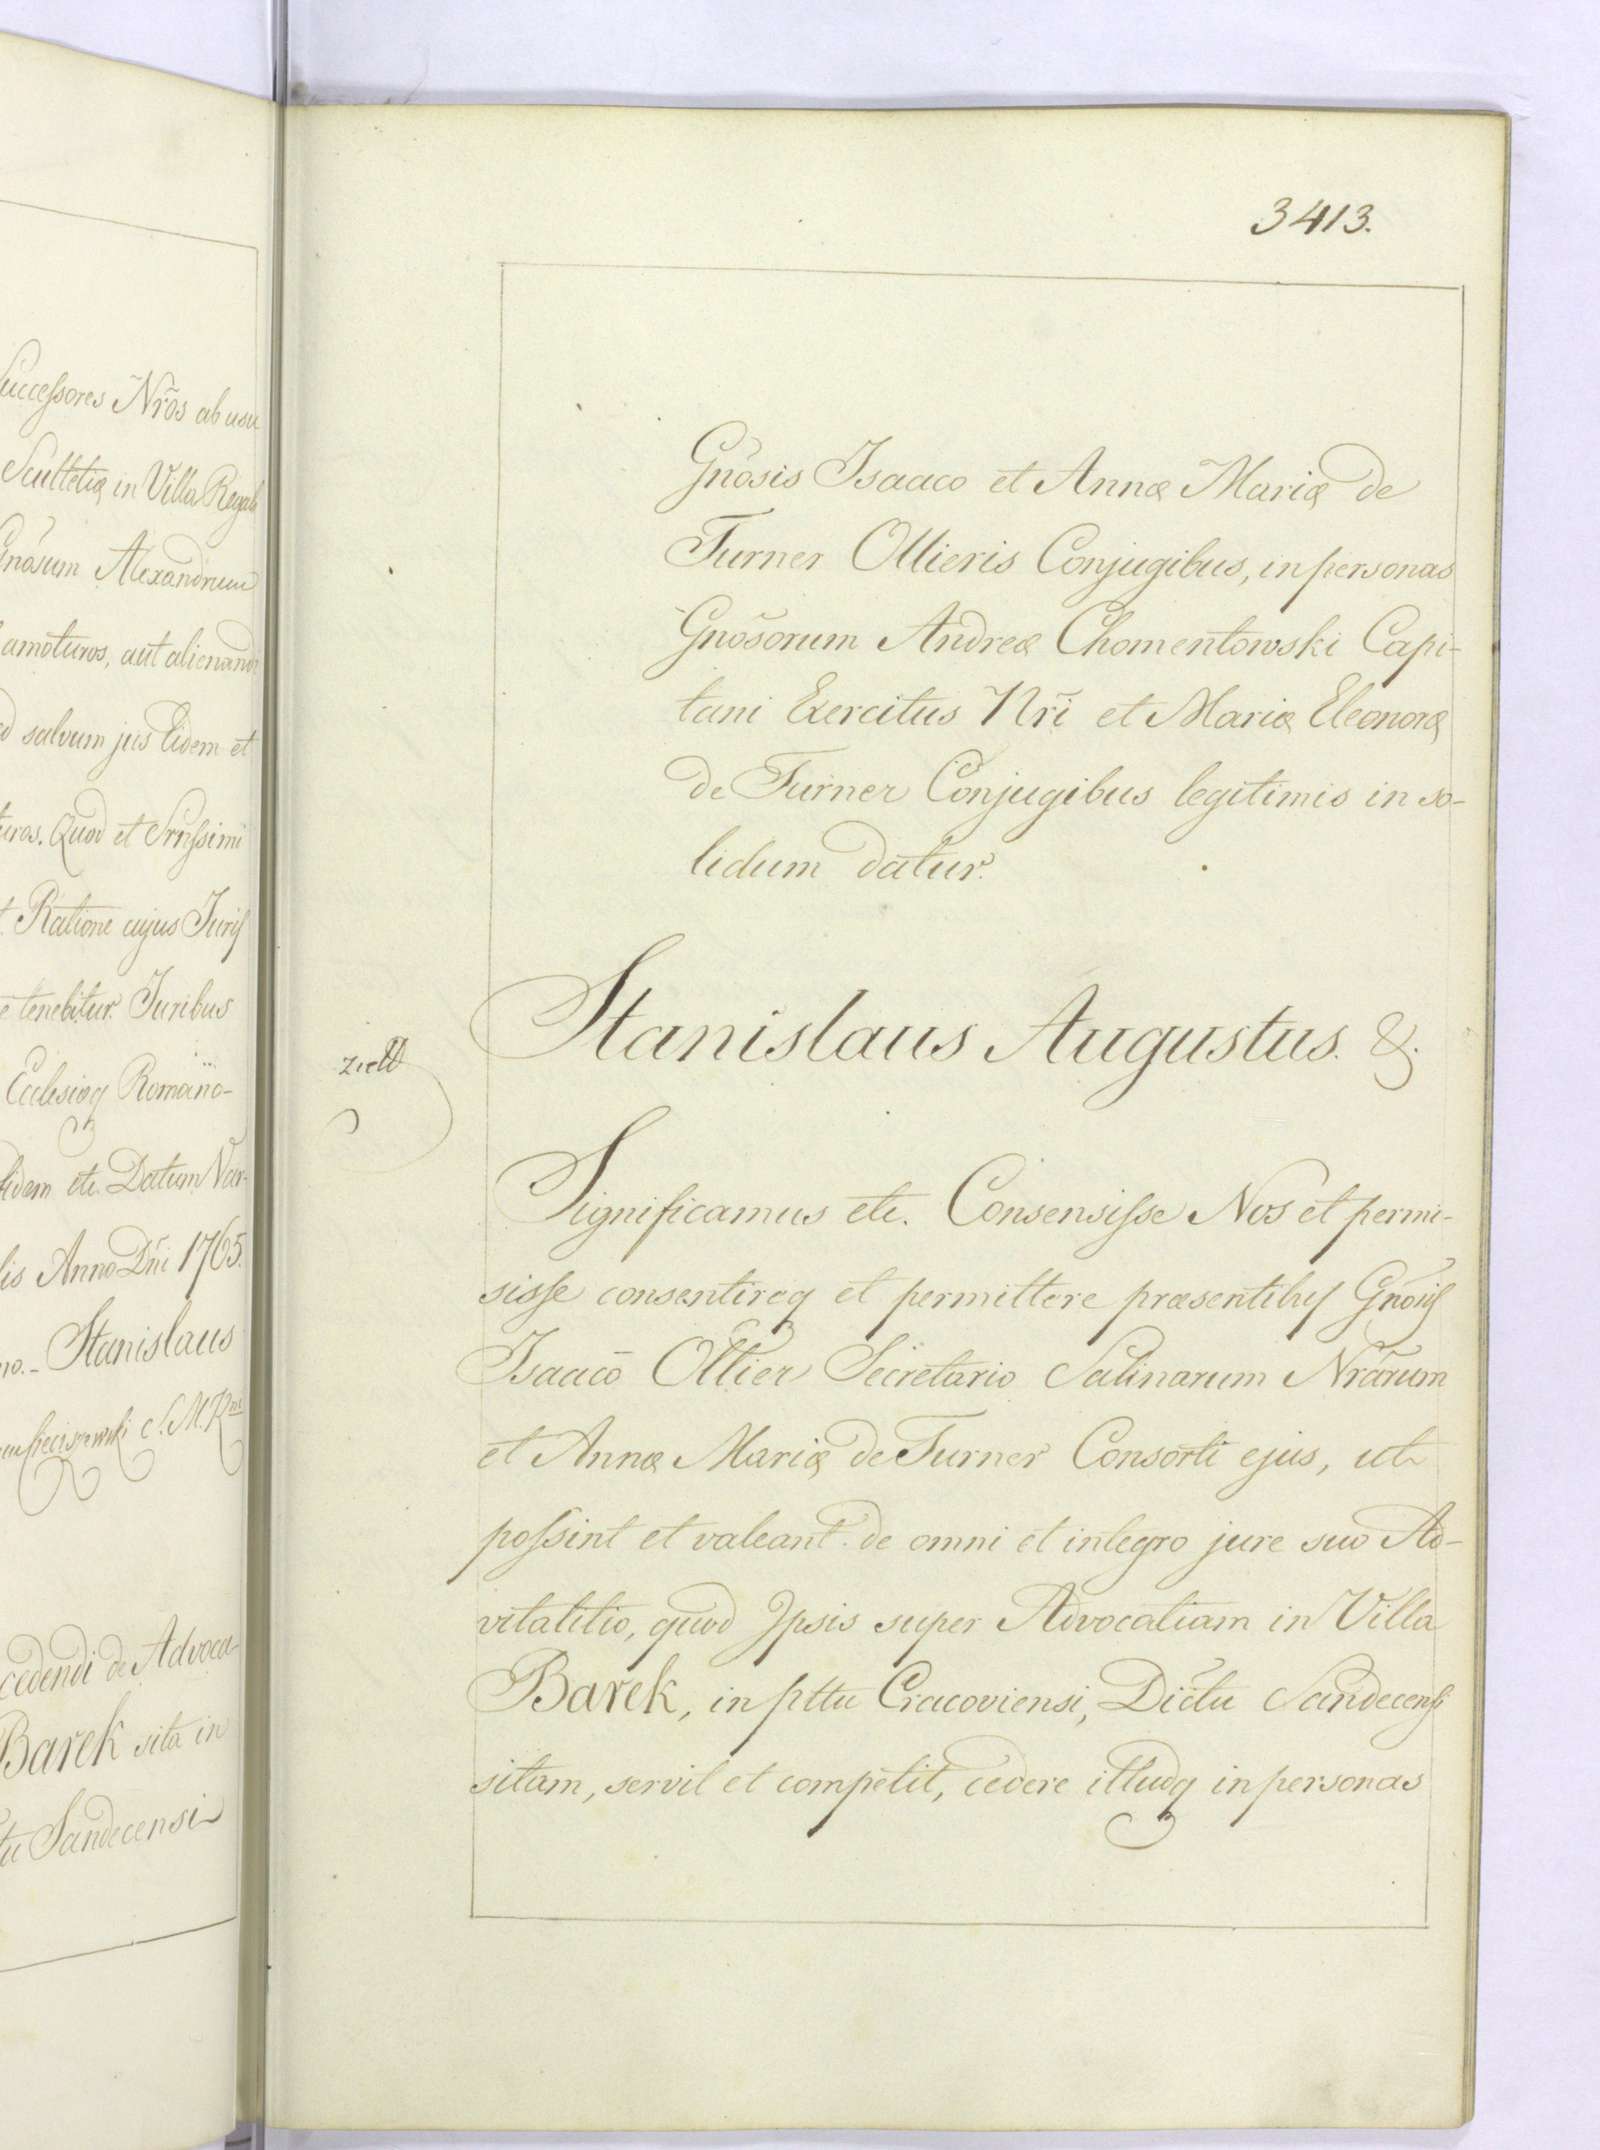 uccessores Nr̃os ab usu
Scultetiæ in Villa Regali
Gnõsum Alexandrum
amoturos, aut alienandi
salvum jus Eidem et
uros. Quod et Srnissimi
Ratione cujus Juris
tenebitur. Juribus
Ecclesiæq Romano-
fidem etc. Datum Var-
lis Anno Dñi 1765.
no. - Stanislaus
S. M. R
cedendi de Advoca-
Barek sita in
tu Sandecensi
3413.
Gnõsis Isaaco et Annæ Mariæ de
Turner Ollieris Conjugibus, in personas
Gnõsorum Andreæ Chomentowski Capi-
tani Exercitus Nrĩ et Mariæ Eleonoræ
de Turner Conjugibus legitimis in so-
lidum datur.
Stanislaus Augustus. &.
Significamus etc. Consensisse Nos et permi-
sisse consentireq et permittere præsentibus Gnõsis
Isaaco Ollier Secretario Salinarum Nrãrum
et Annæ Mariæ de Turner Consorti ejus, ut
possint et valeant de omni et integro jure suo Ad-
vitalitio, quod Ipsis super Advocatiam in Villa
Barek, in pttu Cracoviensi, Dictu Sandecensi
sitam, servit et competit, cedere illudq in personas